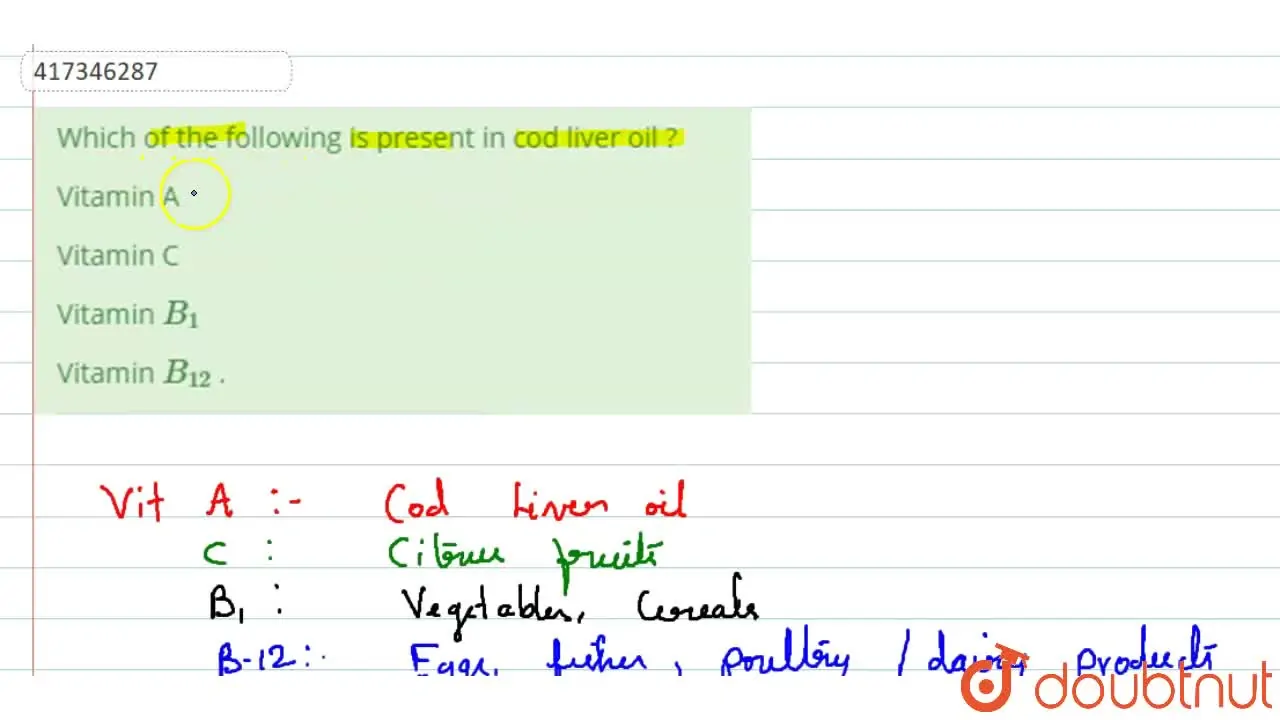 417346287
Which of the following is present in cod liver oil ?
Vitamin A
Vitamin C
Vitamin B₁
Vitamin B₁₂ .
Vit A :- Cod Liver oil
C : Citrus fruits
B₁ : Vegetables, Cereals
B-12 :- Eggs, fishes, poultry / dairy products
doubtnut